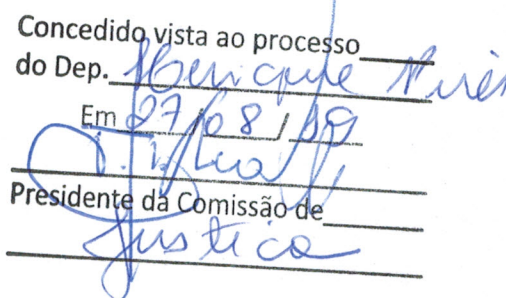 Concedido vista ao processo
do Dep. Henrique Pires
Em 27/08/19
Presidente da Comissão de
Justica